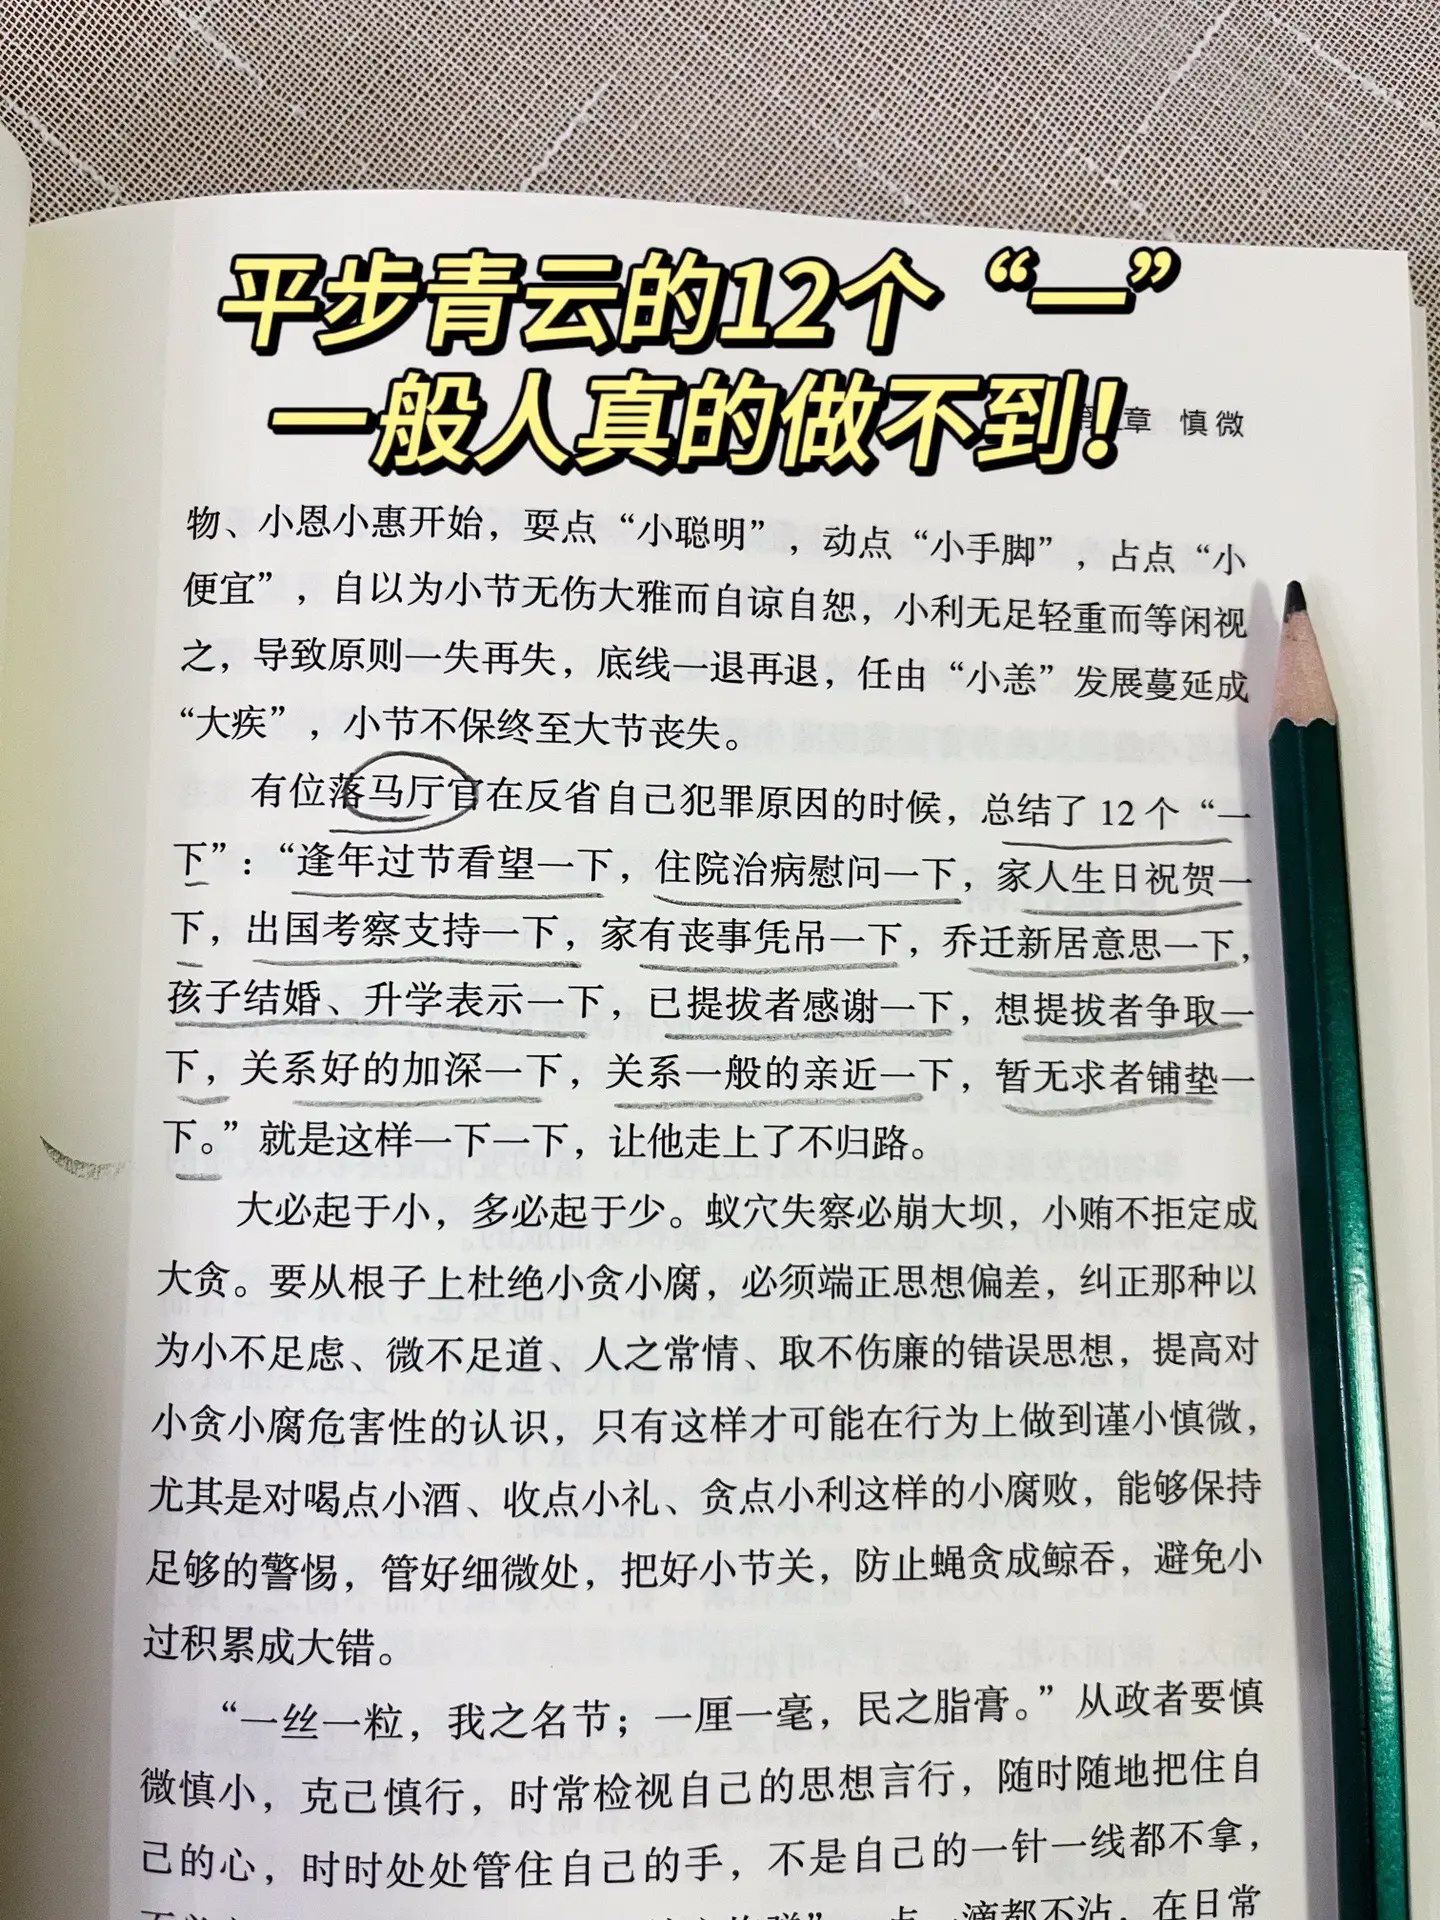 平步青云的12个“一”
一般人真的做不到！
章 慎微
物、小恩小惠开始，耍点“小聪明”，动点“小手脚”，占点“小
便宜”，自以为小节无伤大雅而自谅自恕，小利无足轻重而等闲视
之，导致原则一失再失，底线一退再退，任由“小恙”发展蔓延成
“大疾”，小节不保终至大节丧失。
有位落马厅官在反省自己犯罪原因的时候，总结了12个“一
下”：“逢年过节看望一下，住院治病慰问一下，家人生日祝贺一
下，出国考察支持一下，家有丧事凭吊一下，乔迁新居意思一下，
孩子结婚、升学表示一下，已提拔者感谢一下，想提拔者争取一
下，关系好的加深一下，关系一般的亲近一下，暂无求者铺垫一
下。”就是这样一下一下，让他走上了不归路。
大必起于小，多必起于少。蚁穴失察必崩大坝，小贿不拒定成
大贪。要从根子上杜绝小贪小腐，必须端正思想偏差，纠正那种以
为小不足虑、微不足道、人之常情、取不伤廉的错误思想，提高对
小贪小腐危害性的认识，只有这样才可能在行为上做到谨小慎微，
尤其是对喝点小酒、收点小礼、贪点小利这样的小腐败，能够保持
足够的警惕，管好细微处，把好小节关，防止蝇贪成鲸吞，避免小
过积累成大错。
“一丝一粒，我之名节；一厘一毫，民之脂膏。”从政者要慎
微慎小，克己慎行，时常检视自己的思想言行，随时随地把住自
己的心，时时处处管住自己的手，不是自己的一针一线都不拿，
一点一滴都不沾，在日常